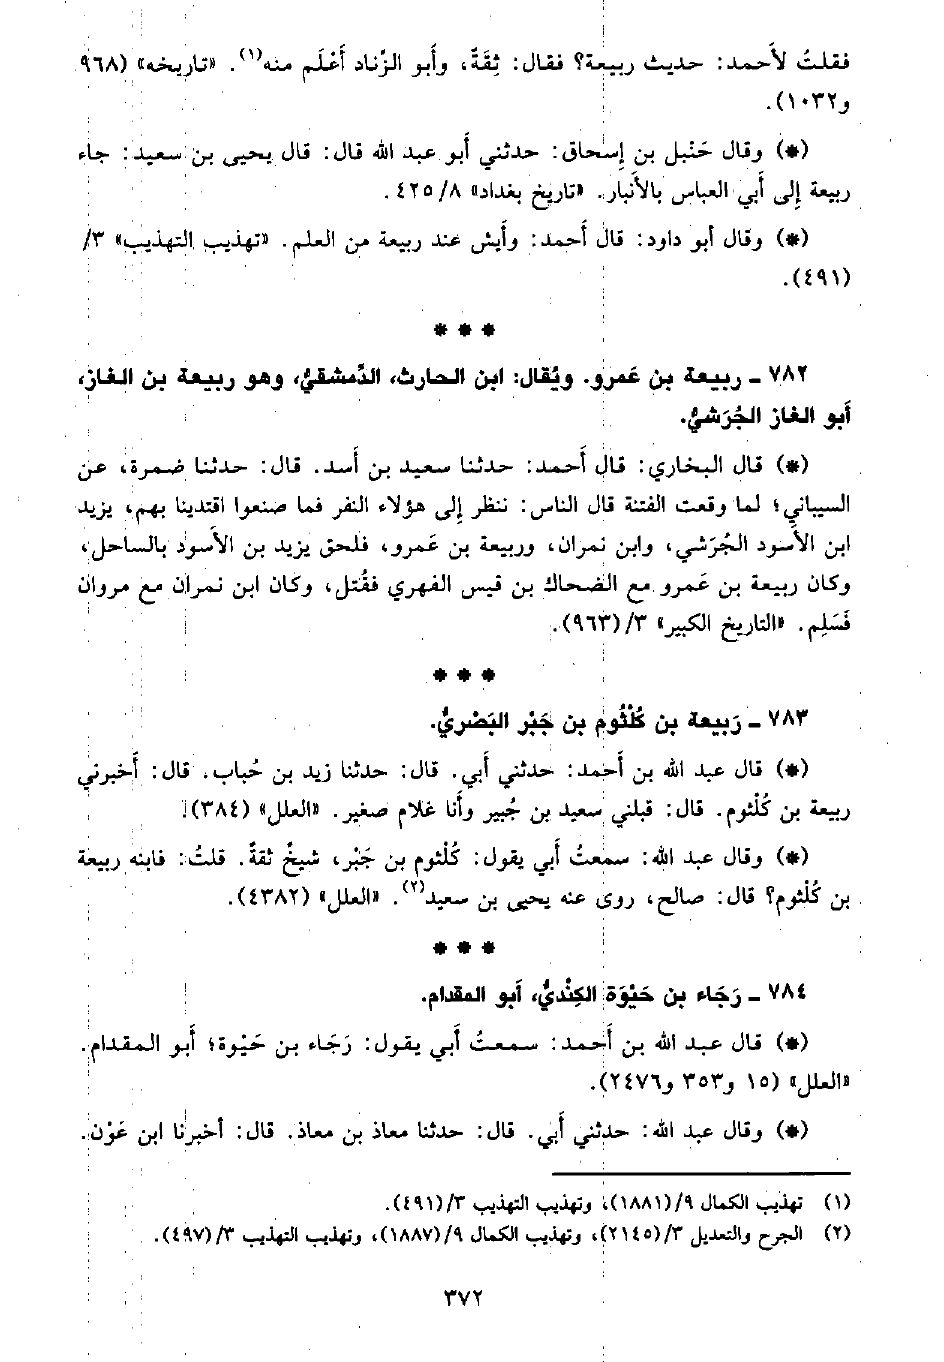 فقلتُ لأحمد: حديث ربيعة؟ فقال: ثِقَةٌ، وأَبو الزِّناد أَعْلَم منه(١). «تاريخه» (٩٦٨
و١٠٣٢).
(*) وقال حَنْبل بن إِسحاق: حدثني أَبو عبد الله قال: قال يحيى بن سعيد: جاء
ربيعة إِلى أَبي العباس بالأَنبار. «تاريخ بغداد» ٨/ ٤٢٥.
(*) وقال أبو داود: قال أَحمد: وأَيش عند ربيعة من العلم. «تهذيب التهذيب» ٣/
(٤٩١).
* * *
٧٨٢ ـ ربيعة بن عَمرو. ويُقال: ابن الحارث، الدِّمشقيُّ، وهو ربيعة بن الغاز،
أَبو الغاز الجُرَشيُّ.
(*) قال البخاري: قال أَحمد: حدثنا سعيد بن أَسد. قال: حدثنا ضمرة، عن
السيباني؛ لما وقعت الفتنة قال الناس: ننظر إِلى هؤلاء النفر فما صنعوا اقتدينا بهم، يزيد
ابن الأَسود الجُرَشي، وابن نمران، وربيعة بن عَمرو، فلحق يزيد بن الأَسود بالساحل،
وكان ربيعة بن عَمرو مع الضحاك بن قيس الفهري فقُتل، وكان ابن نمران مع مروان
فَسَلِم. «التاريخ الكبير» ٣/ (٩٦٣).
* * *
٧٨٣ ـ رَبيعة بن كُلْثُوم بن جَبْر البَصْريُّ.
(*) قال عبد الله بن أَحمد: حدثني أَبي. قال: حدثنا زيد بن حُباب، قال: أَخبرني
ربيعة بن كُلْثوم. قال: قبلني سعيد بن جُبير وأَنا غلام صغير. «العلل» (٣٨٤).
(*) وقال عبد الله: سمعتُ أَبي يقول: كُلْثوم بن جَبْر، شيخٌ ثقةٌ. قلتُ: فابنه ربيعة
بن كُلْثوم؟ قال: صالح، روى عنه يحيى بن سعيد(٢). «العلل» (٤٣٨٢).
* * *
٧٨٤ ـ رَجَاء بن حَيْوَة الكِنْديُّ، أَبو المقدام.
(*) قال عبد الله بن أَحمد: سمعتُ أَبي يقول: رَجَاء بن حَيْوة؛ أَبو المقدام.
«العلل» (١٥ و٣٥٣ و٢٤٧٦).
(*) وقال عبد الله: حدثني أَبي. قال: حدثنا معاذ بن معاذ. قال: أخبرنا ابن عَوْن.
(١) تهذيب الكمال ٩/(١٨٨١)، وتهذيب التهذيب ٣/(٤٩١).
(٢) الجرح والتعديل ٣/(٢١٤٥)، وتهذيب الكمال ٩/(١٨٨٧)، وتهذيب التهذيب ٣/(٤٩٧).
٣٧٢